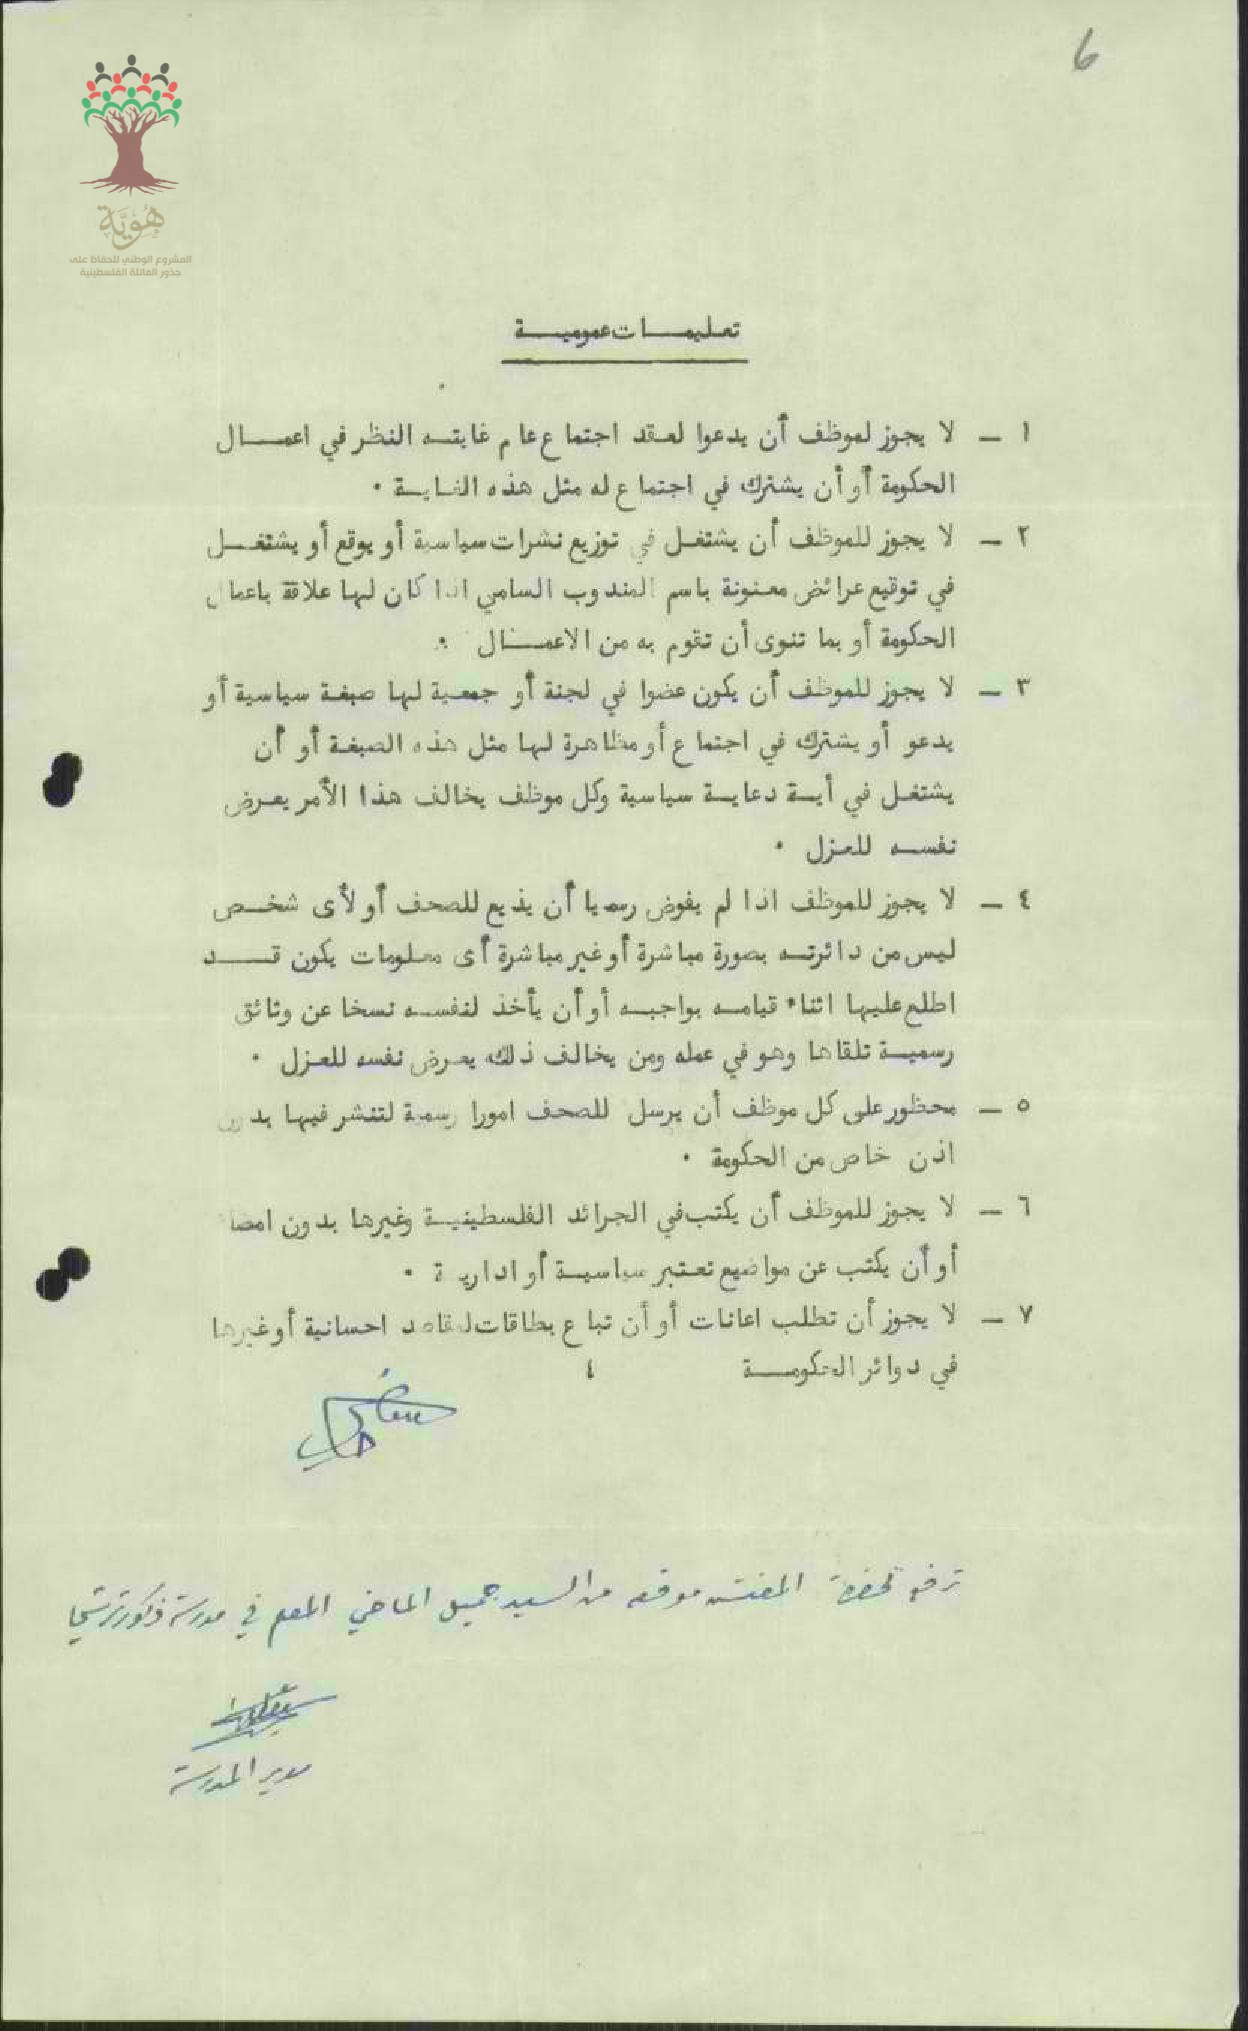 6
هُوِيَّة
المشروع الوطني للحفاظ على
جذور العائلة الفلسطينية
تعليمات عمومية
١ - لا يجوز لموظف أن يدعوا لعقد اجتماع عام غايته النظر في اعمال
الحكومة أو أن يشترك في اجتماع له مثل هذه الغاية .
٢ - لا يجوز للموظف أن يشتغل في توزيع نشرات سياسية أو يوقع أو يشتغل
في توقيع عرائض معنونة باسم المندوب السامي اذا كان لها علاقة باعمال
الحكومة أو بما تنوى أن تقوم به من الاعمال .
٣ - لا يجوز للموظف أن يكون عضوا في لجنة أو جمعية لها صبغة سياسية أو
يدعو أو يشترك في اجتماع أو مظاهرة لها مثل هذه الصبغة أو أن
يشتغل في أية دعاية سياسية وكل موظف يخالف هذا الأمر يعرض
نفسه للعزل .
٤ - لا يجوز للموظف اذا لم يفوض رسميا أن يذيع للصحف أو لأى شخص
ليس من دائرته بصورة مباشرة أو غير مباشرة أى معلومات يكون قد
اطلع عليها اثناء قيامه بواجبه أو أن يأخذ لنفسه نسخا عن وثائق
رسمية تلقاها وهو في عمله ومن يخالف ذلك يعرض نفسه للعزل .
٥ - محظور على كل موظف أن يرسل للصحف امورا رسمية لتنشر فيها بدون
اذن خاص من الحكومة .
٦ - لا يجوز للموظف أن يكتب في الجرائد الفلسطينية وغيرها بدون امضاء
أو أن يكتب عن مواضيع تعتبر سياسية أو ادارية .
٧ - لا يجوز أن تطلب اعانات أو أن تباع بطاقات لمقاصد احسانية أو غيرها
في دوائر الحكومة
ترفع لحضرة المفتش موقعه من السيد جميل الماضي المعلم في مدرسة ذكور ترشيحا
مدير المدرسة